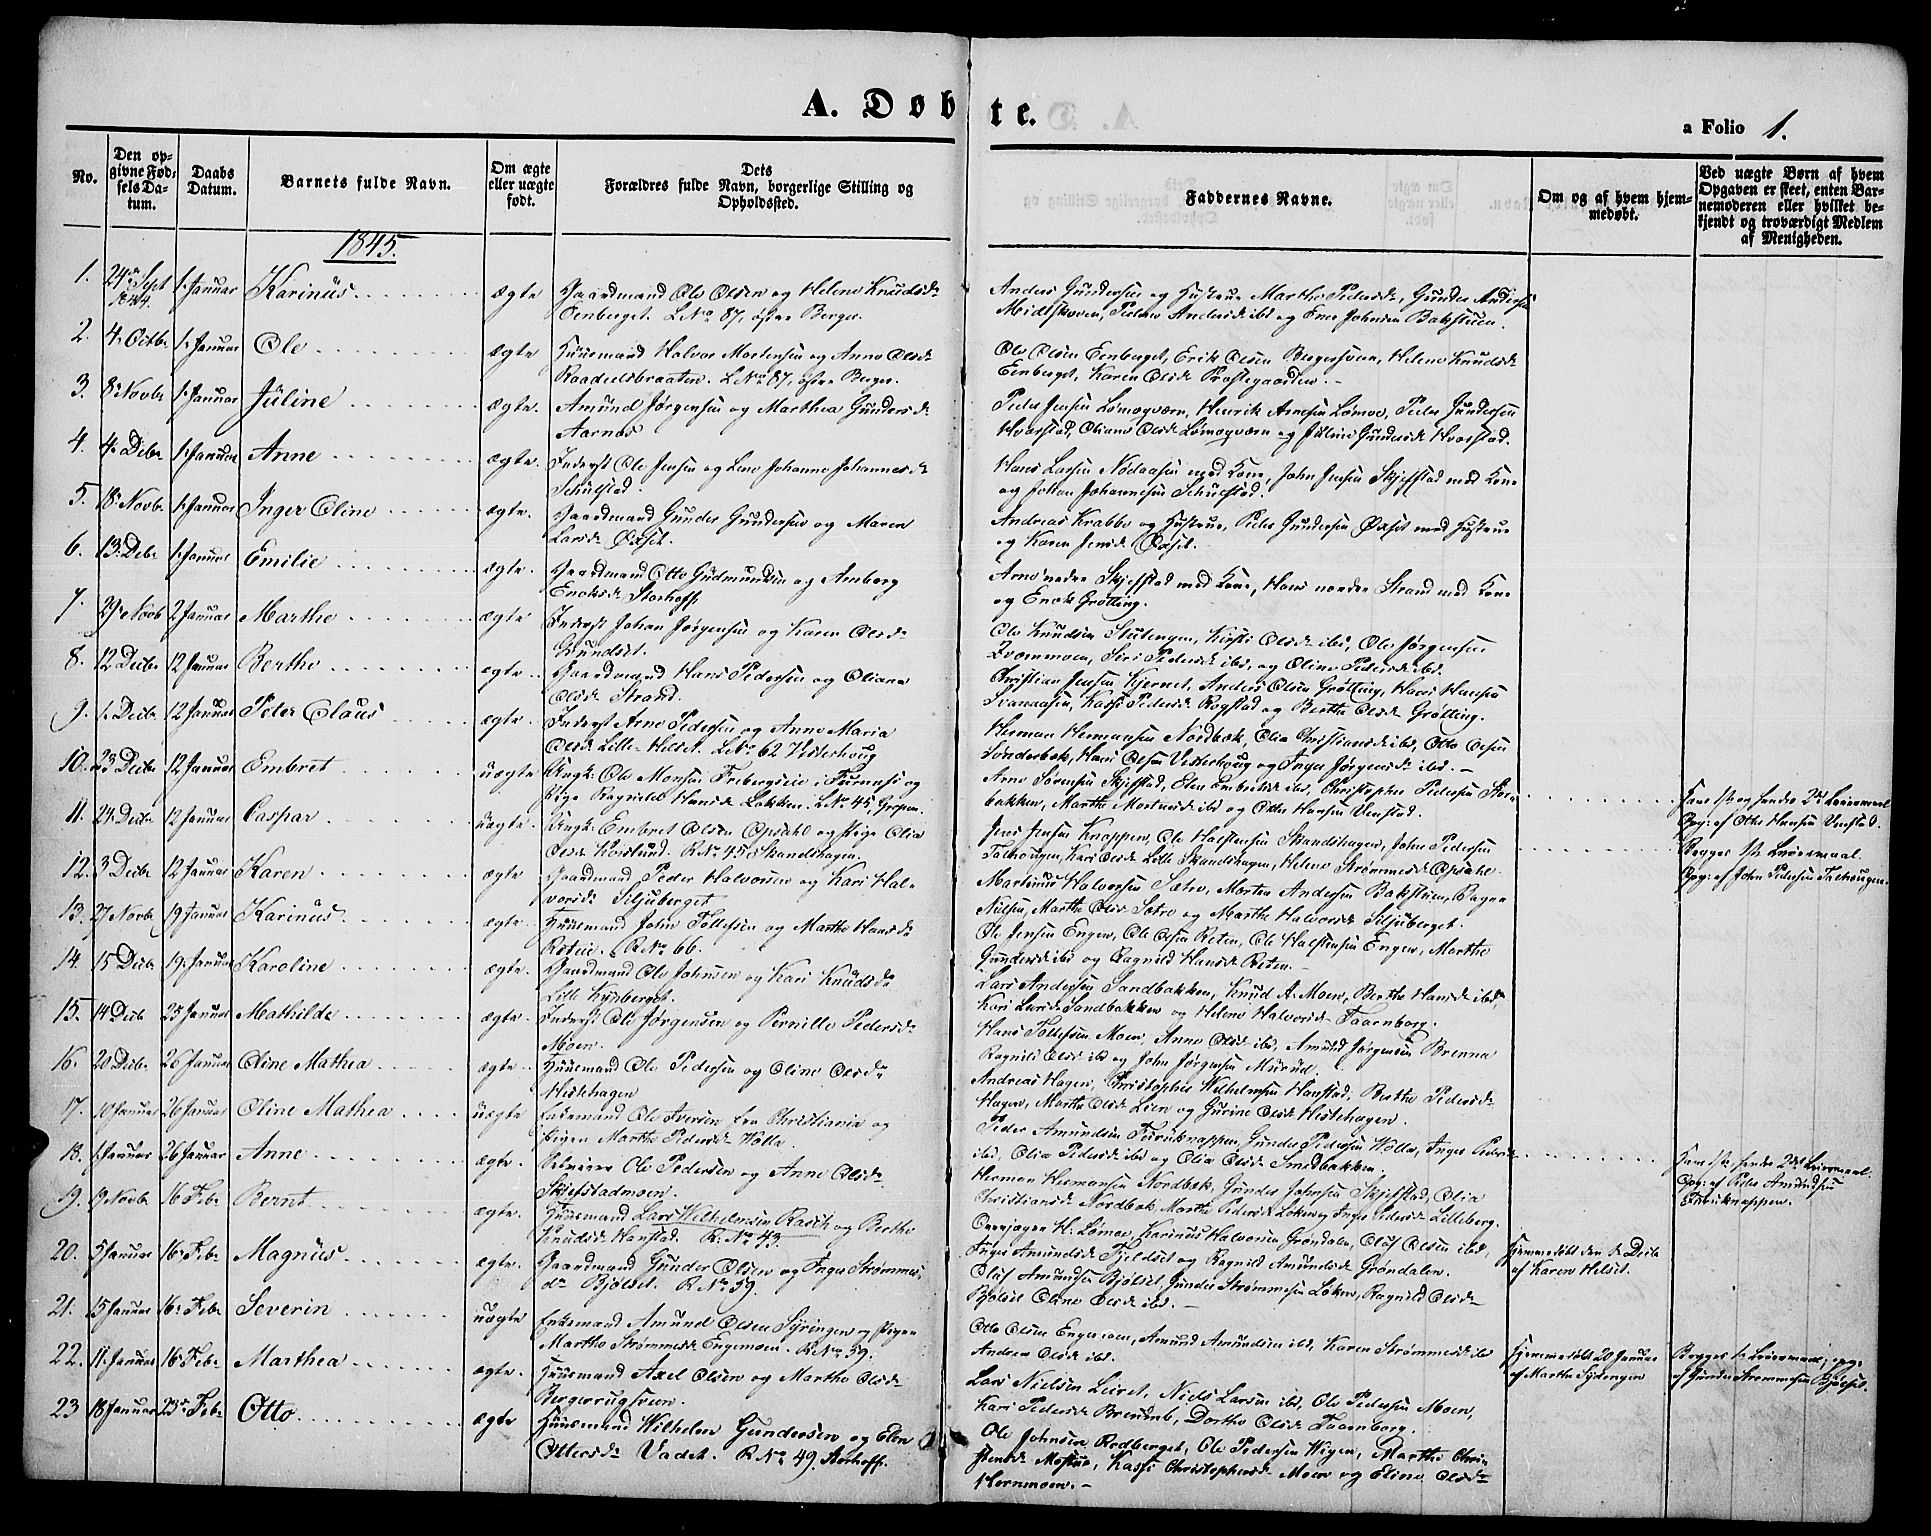 A. Døbte.
a Folio 1.
No.
Den opgivne Fødsels Datum.
Daabs Datum.
Barnets fulde Navn.
Om ægte eller uægte født.
Dets Forældres fulde Navn, borgerlige Stilling og Opholdssted.
Faddernes Navne.
Om og af hvem hjemmedøbt.
Ved uægte Børn af hvem Opgaven er skeet, enten Barnemoderen eller hvilket bekjendt og troværdigt Medlem af Menigheden.
1845.
1. 24de Sept 1844. 1. Januar Karinus ægte Gaardmand Ole Olsen og Helene Knudsdr
Eenberget. L No 87, østre Berger.
Anders Gundersen og Hustrue Marthe Pedersdr, Gunder Andersen
Midtskoven, Andersdr ibd og Johnsen Bakstuen.
2. 4. Octbr 1. Januar Ole ægte Huusmand Halvor Mortensen og Anne Olsdr
L No 87, østre Berger.
Ole Olsen Eenberget, Erik Olsen Bergersveen, Helene Knudsdr
Eenberget, Karen Olsdr Prestegaarden.
3. 8. Novbr 1. Januar Juline ægte. Amund Jørgensen og Marthea Gundersdr
Aarnæs
Peder Jensen Lømogværn, Henrik Arnesen Lømoe, Peder Gundersen
Hvarstad, Oliane Olsdr Lømogværn og Juline Gundersdr Hvarstad.
4. 4. Decbr 1. Januar Anne ægte. Inderst Ole Jensen og Lene Johanne Johannesdr
Schulstad.
Hans Larsen Nodaasen med Kone, John Jensen Skjefstad med Kone
og Johan Johannesen Schulstad.
5. 18. Novbr 1. Januar Inger Oline ægte. Gaardmand Gunder Gundersen og Maren
Larsdr Øxset.
Andreas Krabbe og Hustrue, Peder Gundersen Øxset med Hustrue
og Karen Jensdr Øxset.
6. 13. Debr 1. Januar Emilie ægte. Gaardmand Otto Gudmundsen og Amborg
Enoksdr Storhoff.
Arne nedre Skjefstad med Kone, Hans nordre Strand med Kone
og Enok Grøtting.
7. 29. Novb 2 Januar Marthe ægte Inderst Johan Jørgensen og Karen Olsdr
Grundset.
Ole Knudsen Stutengen, Kirsti Olsdr ibd, Ole Jørgensen
Siri Pedersdr ibd, og Oline Pedersdr ibd.
8. 12 Decbr 12 Januar Berthe ægte Gaardmand Hans Pedersen og Oliane
Olsdr Strand.
Christian Jensen Kjernet, Anders Olsen Grøtting, Hans Hansen
Svenaasen, Kari Pedersdr Rogstad og Berthe Olsdr Grøtting.
9. 1. Decbr 12 Januar Peter Claus ægte Inderst Arne Pedersen og Anne Maria
Olsdr Lille-Helset. L No 62 Vesterhoug
Herman Hermansen Nordbæk, Olia Christiansdr ibd, Otto Olsen
Sønderbæk, Hans Olsen Vesterhoug og Inger Jørgensdr ibd.
10. 23 Decbr 12 Januar Embret uægte Ungk: Ole Monsen i Furnæs og
Pige Ragnild Hansdr Løkken. L No 45 Gropen.
Arne Sørensen Skjefstad, Elen Embretsdr ibd, Christopher Pedersen Storbakken,
Marthe Mortensdr ibd og Otto Hansen Venstad.
Hans 1ste og hendes 2det Leiermaal.
Opg: af Otto Hansen Venstad.
11. 24. Decbr 12 Januar Caspar uægte Ungk: Embret Olsen Opsahl og Pige Olia
Olsdr Korslund. R No 45 Skandshagen.
Jens Jensen Knappen, Ole Halstensen Skandshagen, John Pedersen
Talhougen, Kari Olsdr Lille Skandshagen, Helene Strømmesdr Opsahl.
Begges 1ste Leiermaal.
Opg: af John Pedersen Talhougen.
12. 3 Decbr 12 Januar Karen ægte Gaardmand Peder Halvorsen og Kari Halvorsdr
Siljuberget.
Martinus Halvorsen Satre, Morten Andersen Bakstuen,
Nilsen, Marthe Olsdr Satre og Marthe Halvorsdr Siljuberget.
13. 27 Novbr 19 Januar Karinus ægte Huusmand John Tollefsen og Marthe Hansdr
Røten. R No 66.
Ole Jensen Engen, Ole Olsen Reten, Ole Halstensen Engen, Marthe
Gundersdr ibd og Ragnild Hansdr Reten.
14. 15 Decbr 19. Januar Karoline ægte. Gaardmand Ole Johnsen og Kari Knudsdr
Lille Kynberget.
Lars Andersen Sandbakken, Knud A. Moen, Berthe Hansdr ibd,
Kari Larsdr Sandbakken og Helene Halvorsdr Taarnborg.
15. 14 Decb 25 Januar Mathilde ægte Inderst Ole Jørgensen og Pernille Pedersdr
Moen.
Hans Tollefsen Moen, Anne Olsdr ibd, Amund Jørgensen Brenna
Ragnild Olsdr ibd og John Jørgensen Mürud.
16. 20 Decbr 26 Januar Oline Mathea ægte Huusmand Ole Pedersen og Oline Olsdr
Histehagen
Andreas Hagen, Christopher Wilhelmsen Hanstad, Berthe Pedersdr
Hagen, Marthe Olsdr Lien og Gurine Olsdr Histehagen.
17. 10 Januar 26 Januar Oline Mathea uægte Enkemand Ole Iversen fra Christiania og
Pigen Marthe Pedersdr Wolla.
Peder Amundsen Furuknappen, Gunder Pedersen Wolla, Inger Pedersdr
ibd, Olia Pedersdr ibd og Olia Olsdr Smedbakken.
Hans 1ste, hendes 2det Leiermaal.
Opg: af Peder Amundsen
Furuknappen.
18. 1. Januar 26 Januar Anne ægte. Ole Pedersen og Anne Olsdr
Skjefstadmoen.
Herman Hermansen Nordbæk, Gunder Johnsen Skjefstad, Olia
Christiansdr Nordbæk, Marthe Pedersdr Løken og Inger Pedersdr Lilleberg.
19. 9 Novbr 16 Febr Bernt ægte. Huusmand Lars Wilhelmsen Rask og Berthe
Knudsdr Hanstad. R. No 43.
H: Lømoe, Karinus Halvorsen Grøndalen, Oluf Olsen ibd,
Inger Amundsdr Fjeldset og Ragnild Amundsdr Grøndalen.
Hjemmedøbt den 1. Decbr
af Karen Helset.
20. 5 Januar 16 Febr Magnus ægte. Gaardmand Gunder Olsen og Inger Strømmesdr
Bjølset. R No 59.
Oluf Amundsen Bjølset, Gunder Strømmesen Løken, Ragnild Olsdr
Bjølset Oline Olsdr ibd.
21. 15 Januar 16. Febr Severin uægte Enkemand Amund Olsen Syringen og Pigen
Marthe Strømmesdr Engemoen. R No 59.
Otto Olsen Engemoen, Amund Amundsen ibd, Karen Strømmesdr ibd
Andrea Olsdr ibd.
Hjemmedøbt 20 Januar
af Marthe Syringen
Begges 1ste Leiermaal; opg:
af Gunder Strømmesen Bjølset.
22. 11. Januar 16 Febr Marthea ægte. Huusmand Axel Olsen og Marthe Olsdr
Bergerugsveen.
Lars Nielsen Leiret, Niels Larsen ibd, Ole Pedersen Moen,
Kari Pedersdr, Dorthe Olsdr Taarnborg.
23 18 Januar 23 Febr Otto ægte Huusmand Wilhelm Gundersen og Elen
Ottersdr Vadet. R No 49 Storhoff.
Ole Johnsen Rødberget, Ole Pedersen Wigen, Marthe Christensdr
Kari Christophersdr Moen og Eline Olsdr
Hernmoen.